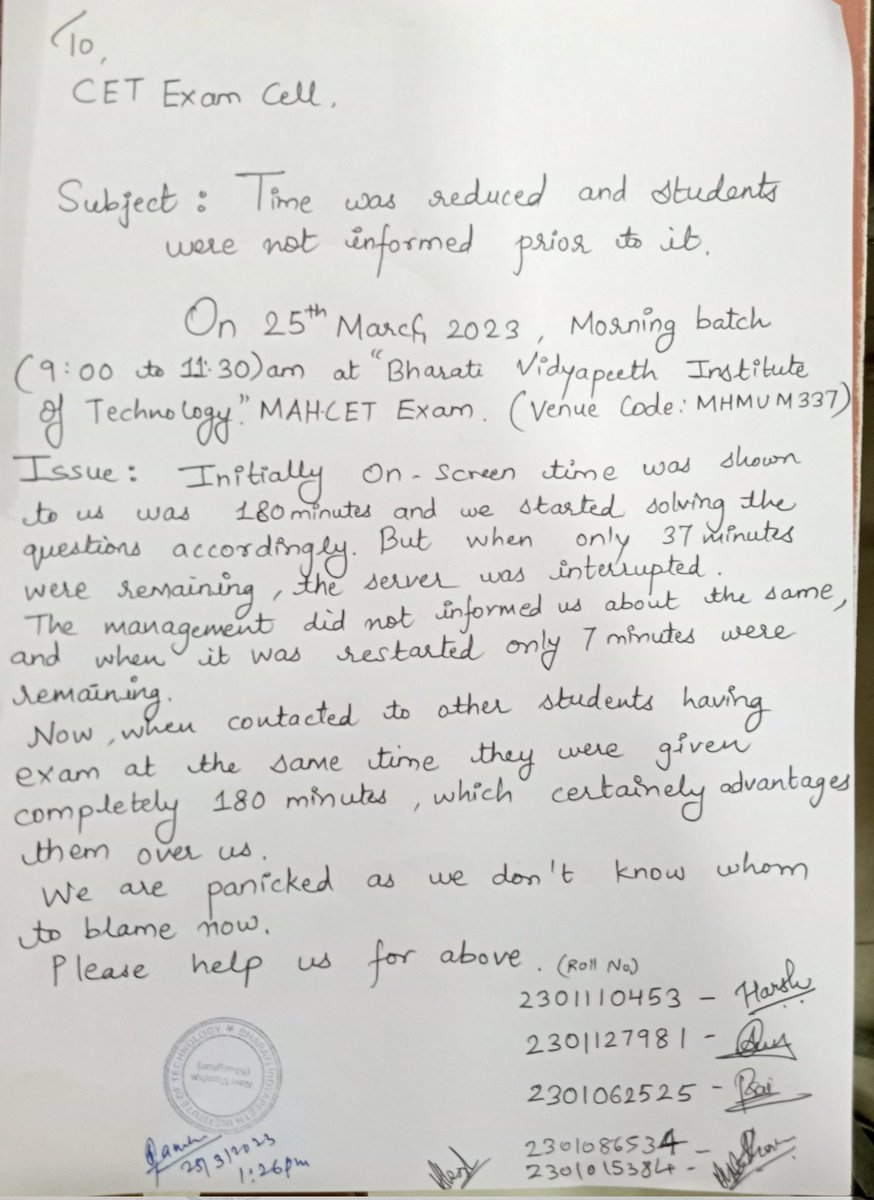 To,
CET Exam Cell.
Subject: Time was reduced and students
were not informed prior to it.
On 25th March 2023, Morning batch
(9:00 to 11:30)am at "Bharati Vidyapeeth Institute
of Technology." MAH-CET Exam. (Venue Code: MHMUM337)
Issue: Initially On-Screen time was shown
to us was 180 minutes and we started solving the
questions accordingly. But when only 37 minutes
were remaining, the server was interrupted.
The management did not informed us about the same,
and when it was restarted only 7 minutes were
remaining.
Now, when contacted to other students having
exam at the same time they were given
completely 180 minutes, which certainely advantages
them over us.
We are panicked as we don't know whom
to blame now.
Please help us for above. (Roll No)
2301110453 - Harsh
2301127981 -
2301062525 -
2301086534 -
2301015384 -
BHARATI VIDYAPEETH INSTITUTE OF TECHNOLOGY
Navi Mumbai
25/3/2023
1:26pm